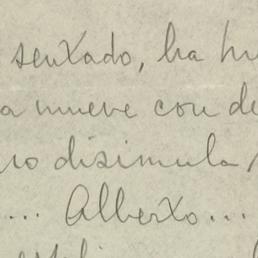 sentado, ha
a mueve con de
ro disimula
... Alberto...